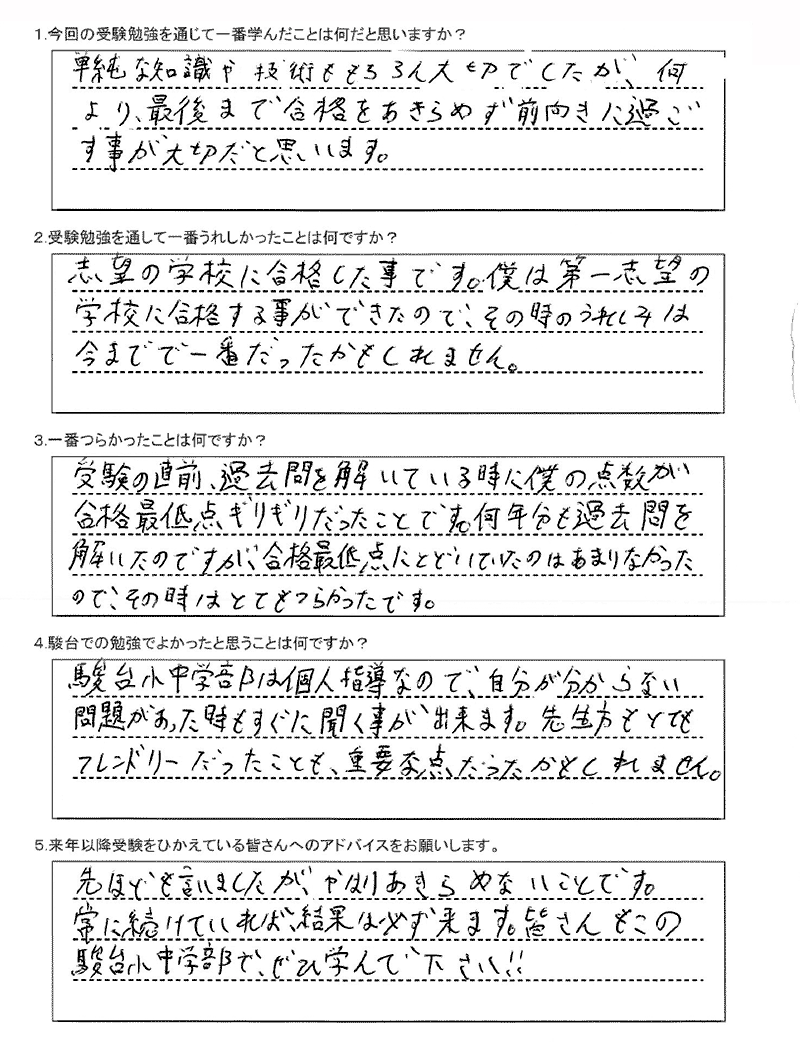 1.今回の受験勉強を通じて一番学んだことは何だと思いますか？
単純な知識や技術ももちろん大切でしたが、何
より、最後まで合格をあきらめず前向きに過ご
す事が大切だと思います。
2.受験勉強を通して一番うれしかったことは何ですか？
志望の学校に合格した事です。僕は第一志望の
学校に合格する事ができたので、その時のうれしみは
今までで一番だったかもしれません。
3.一番つらかったことは何ですか？
受験の直前、過去問を解いている時に僕の点数が
合格最低点ギリギリだったことです。何年分も過去問を
解いたのですが、合格最低点にとどいていたのはあまりなかった
ので、その時はとてもつらかったです。
4.駿台での勉強でよかったと思うことは何ですか？
駿台小中学部は個人指導なので、自分が分からない
問題があった時もすぐに聞く事が出来ます。先生方もとても
フレンドリーだったことも、重要な点だったかもしれません。
5.来年以降受験をひかえている皆さんへのアドバイスをお願いします。
先ほども言いましたが、やはりあきらめないことです。
常に続けていれば、結果は必ず来ます。皆さんもこの
駿台小中学部で、ぜひ学んで下さい!!